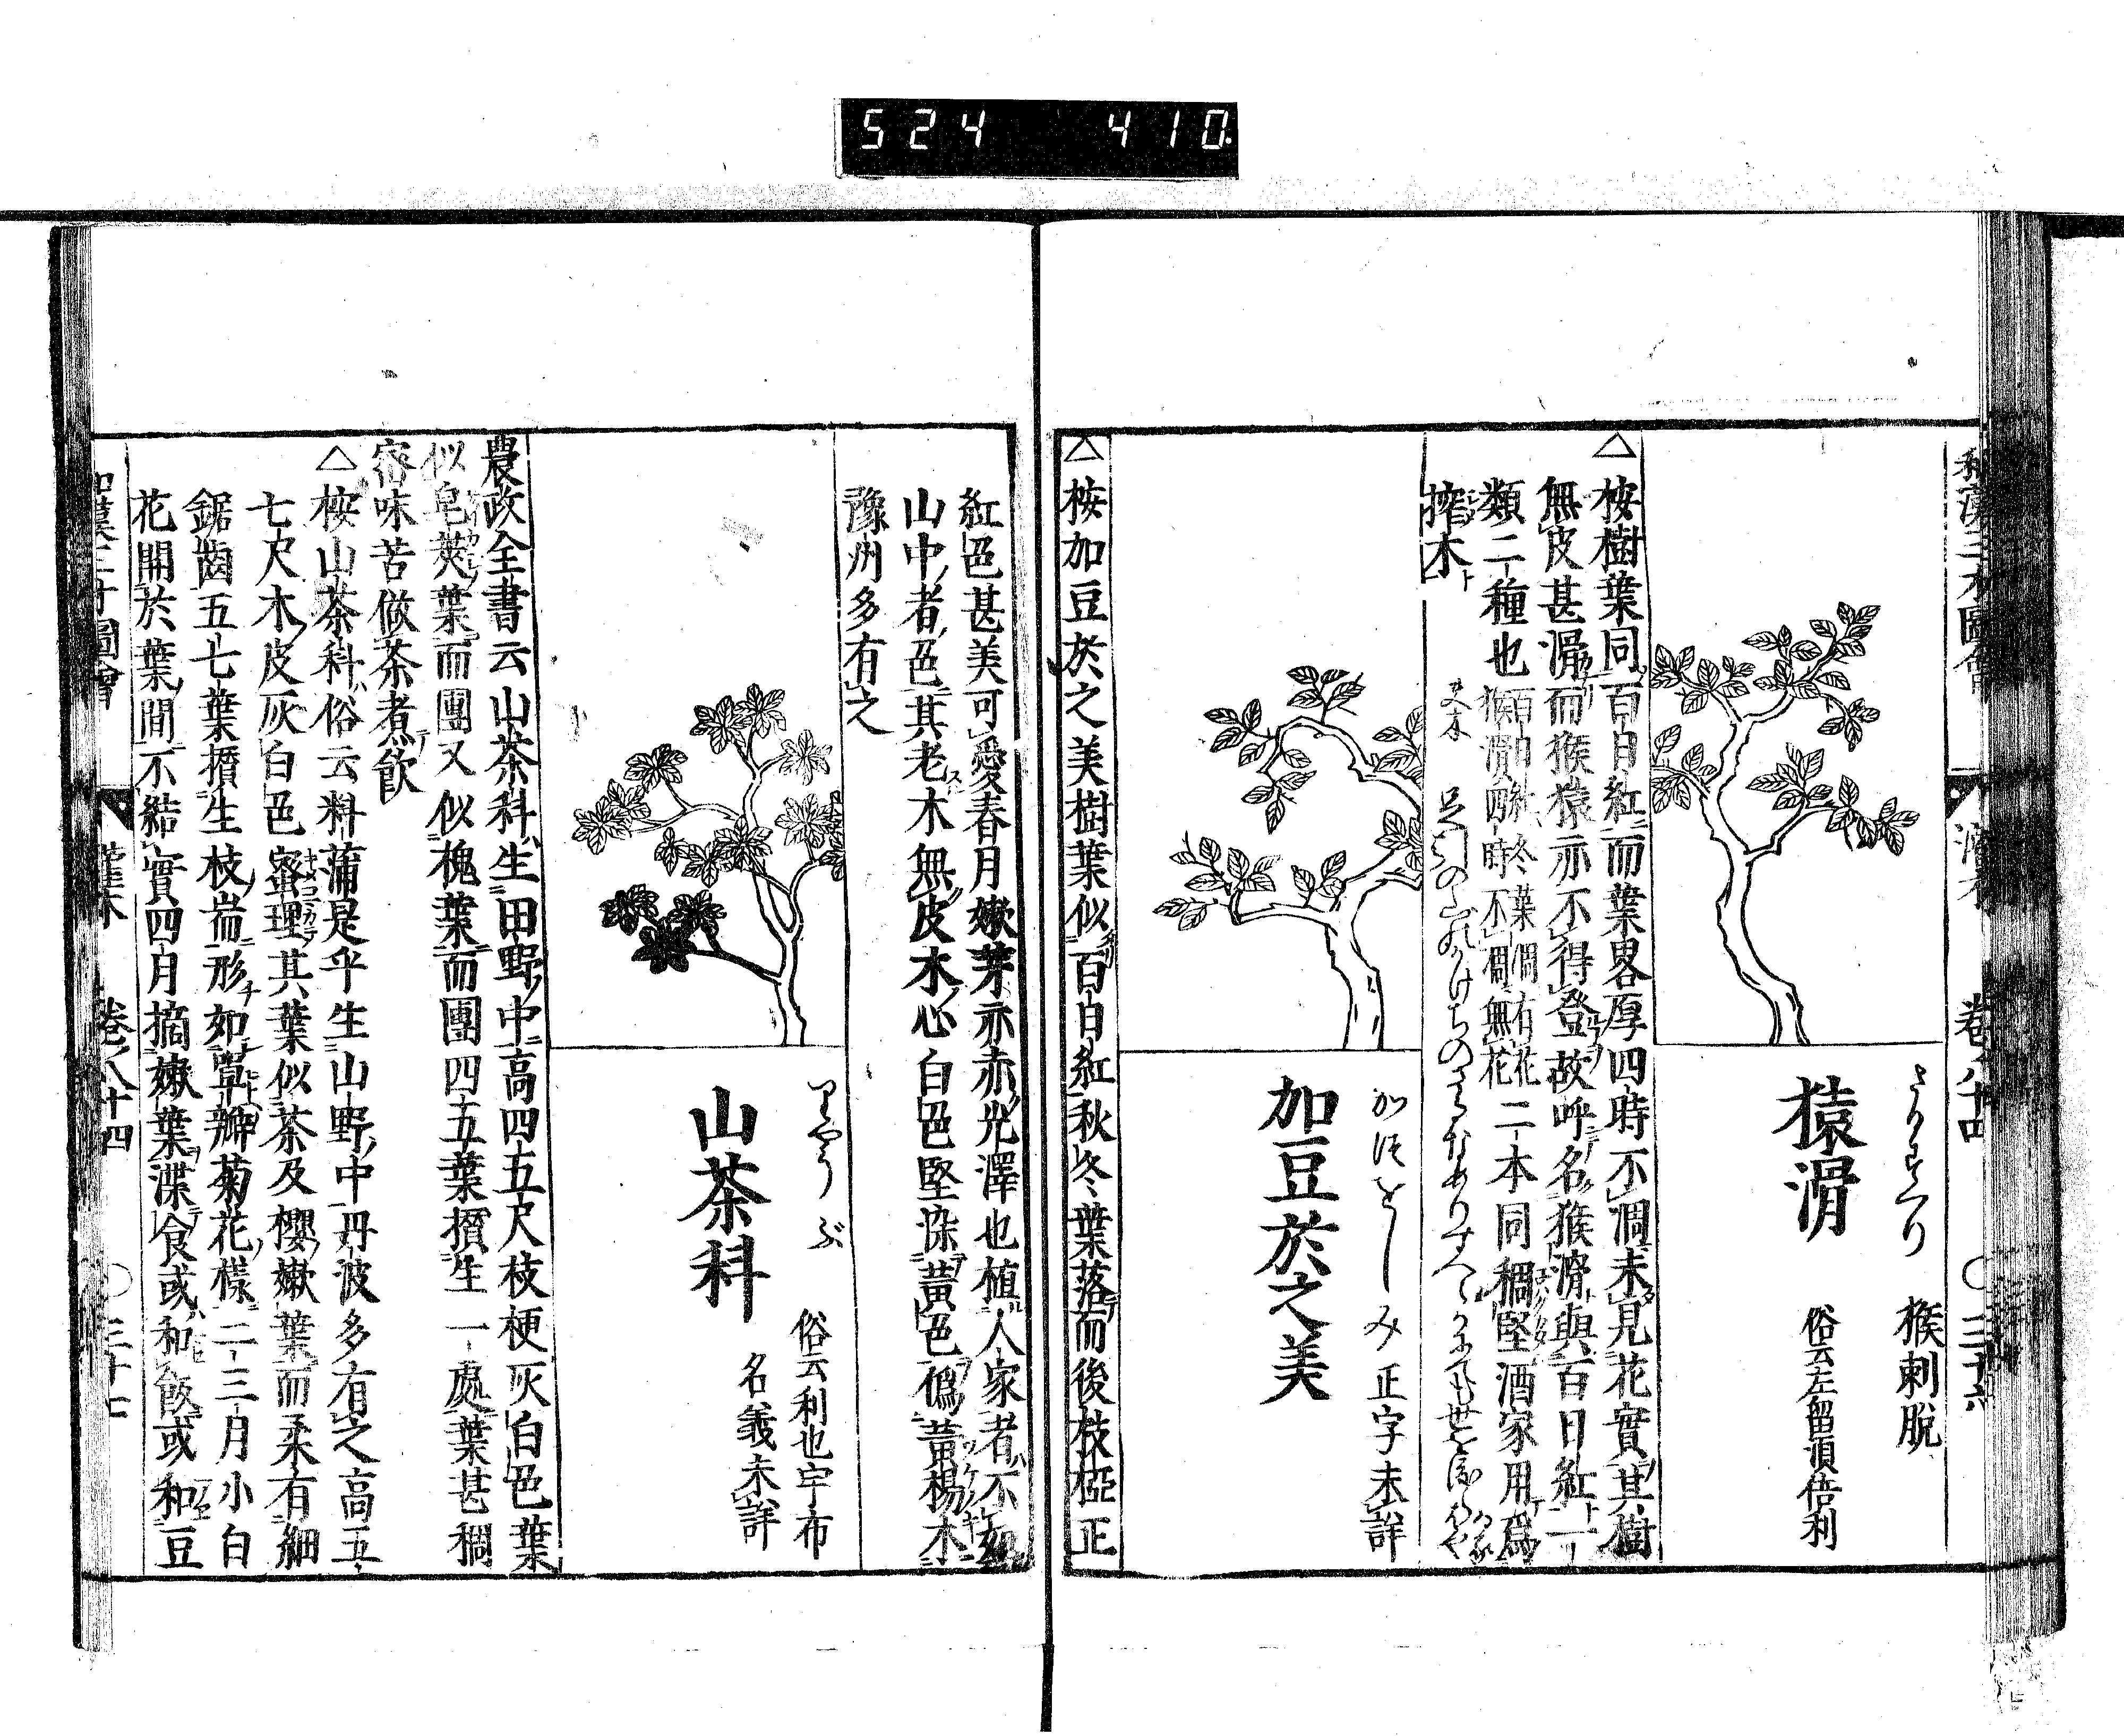 524 410
和漢三才圖會 灌木 卷八十四 ○三十六
さるすべり 猴刺脫
猿滑 俗云左留須倍利
△桉樹葉同百日紅而葉畧厚四時不凋未見花實其樹
無皮甚滑而猴猿亦不得登故呼名猴滑與百日紅一
類二種也 百日紅冬葉凋有花 猴滑四時不凋無花 二本同稠堅酒家用爲
搾木
夫木 足引の
かつをしみ 正字未詳
加豆於之美
△桉加豆於之美樹葉似百日紅秋冬葉落而後枝椏正
紅色甚美可愛春月嫩芽亦赤光澤也植人家者不如
山中者色其老木無皮木心白色堅染黃色僞黃楊木
豫州多有之
りやうぶ
山茶科 俗云利也宇布
名義未詳
農政全書云山茶科生田野中高四五尺枝梗灰白色葉
似皂莢葉而團又似槐葉而團四五葉攅生一處葉甚稠
密味苦做茶煮飮
△桉山茶科俗云料蒲是乎生山野中丹波多有之高五
七尺木皮灰白色密理其葉似茶及櫻嫩葉而柔有細
鋸齒五七葉攅生枝耑形如單瓣菊花樣二三月小白
花開於葉間不結實四月摘嫩葉渫食或和飯或和豆
和漢三才圖會 灌木 卷八十四 ○三十七